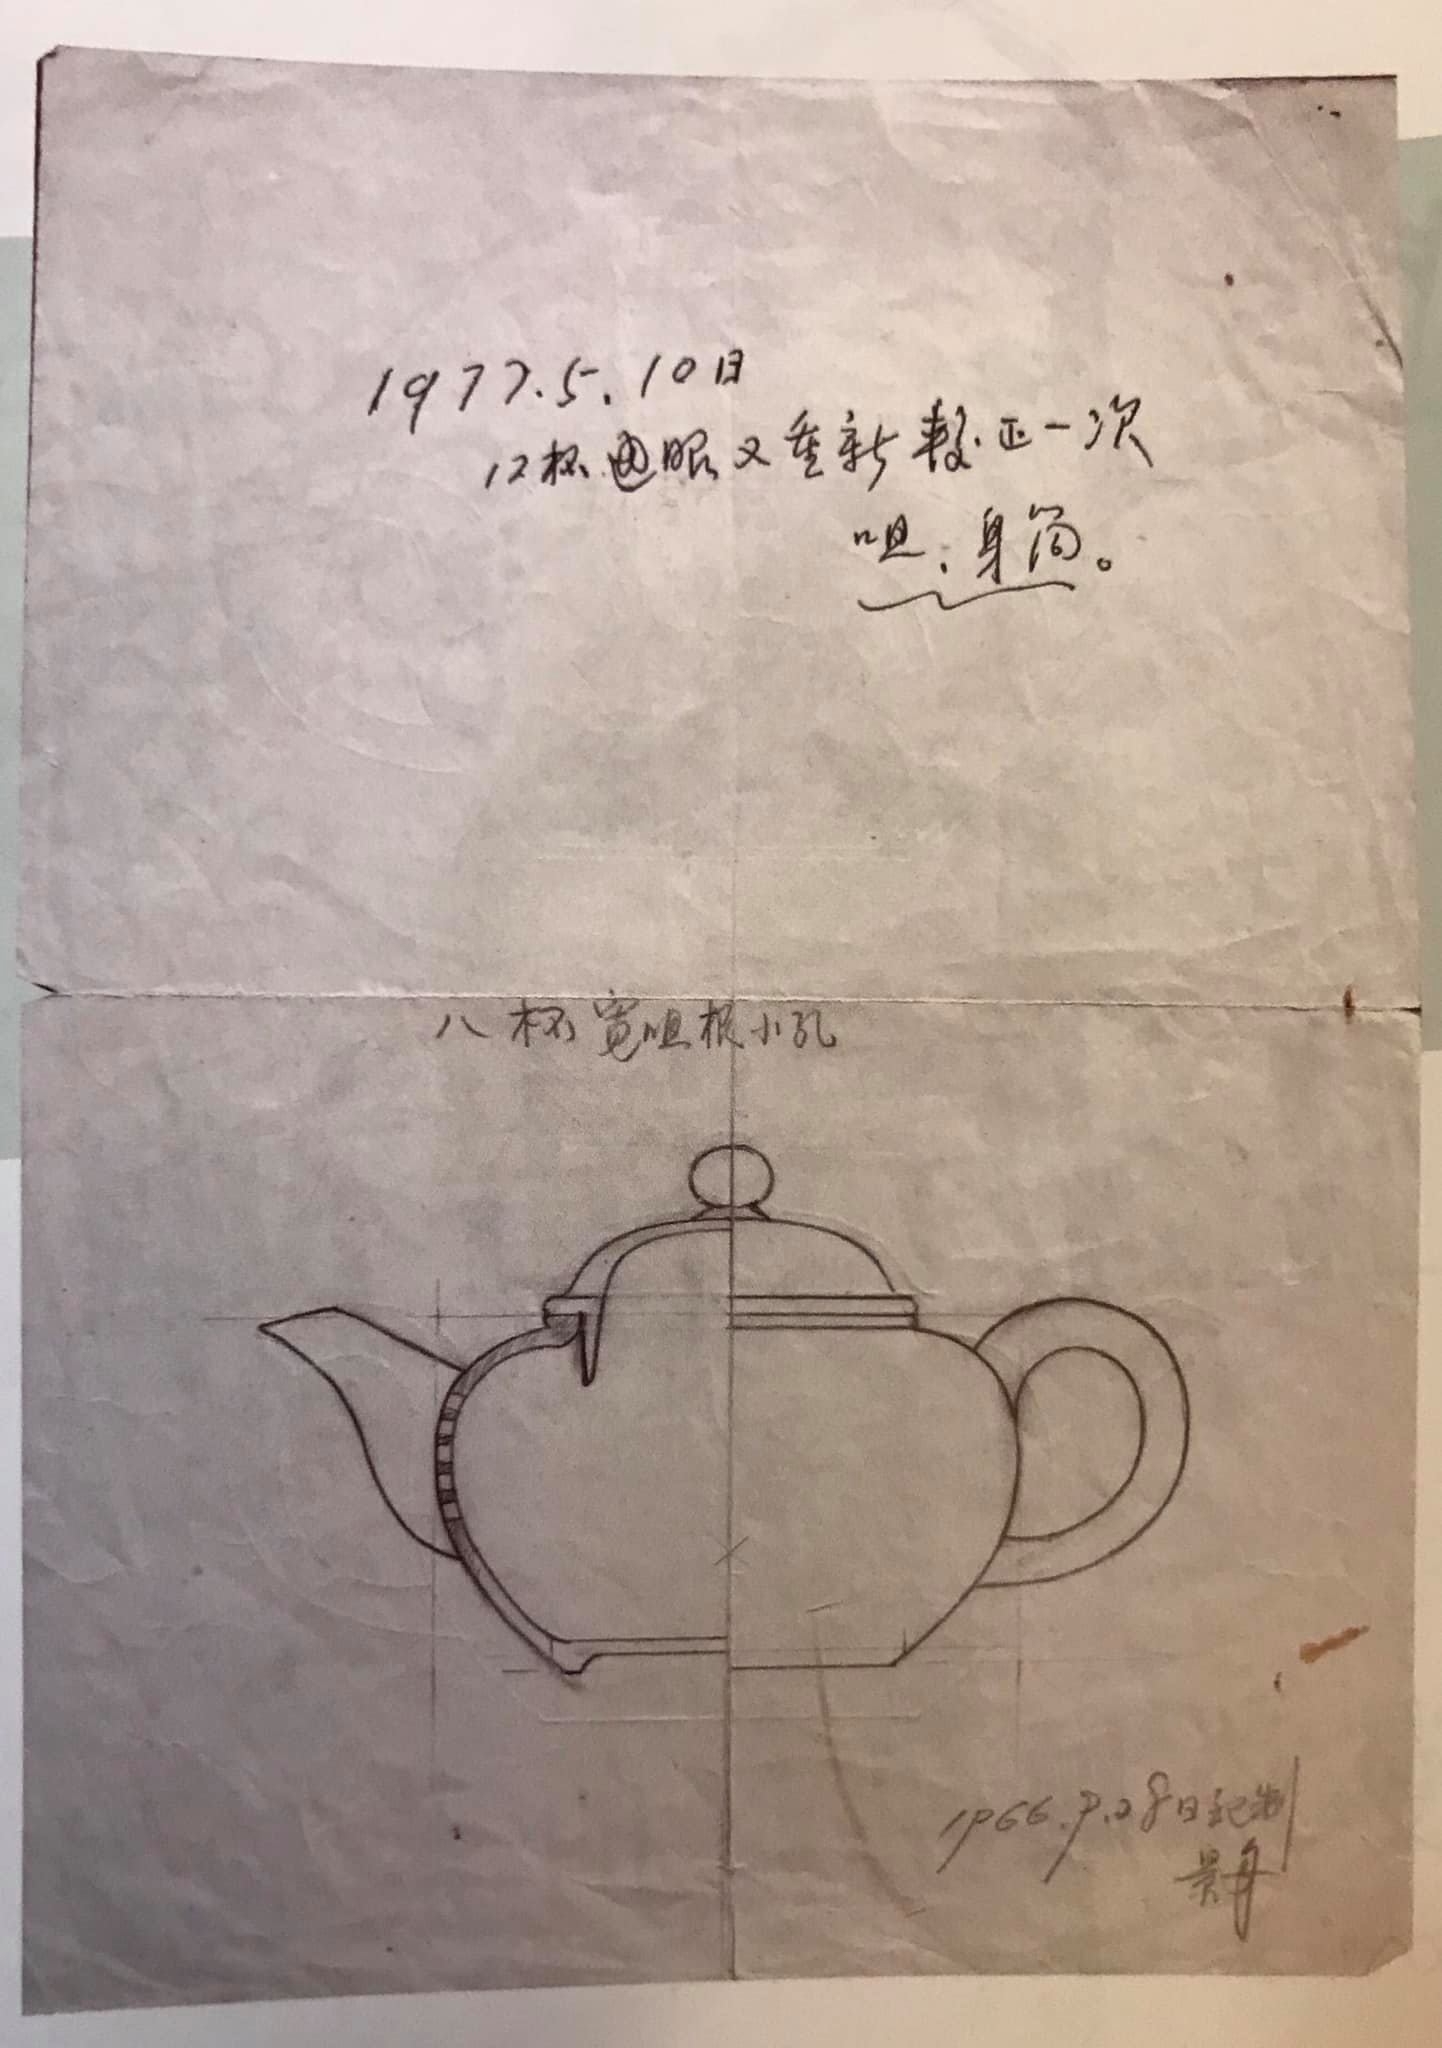 1977.5.10日
12杯通眼又重新較正一次
咀、身筒。
八杯宽咀根小孔
1966.9.28日記制
景舟